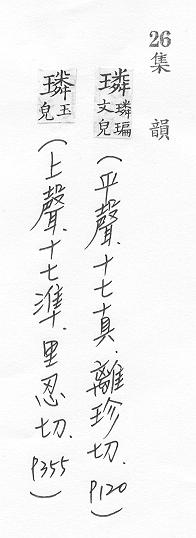 26集韻
璘
璘㻞文皃
（平聲．十七真．離珍切．P120）
璘
玉皃
（上聲．十七準．里忍切．P355）